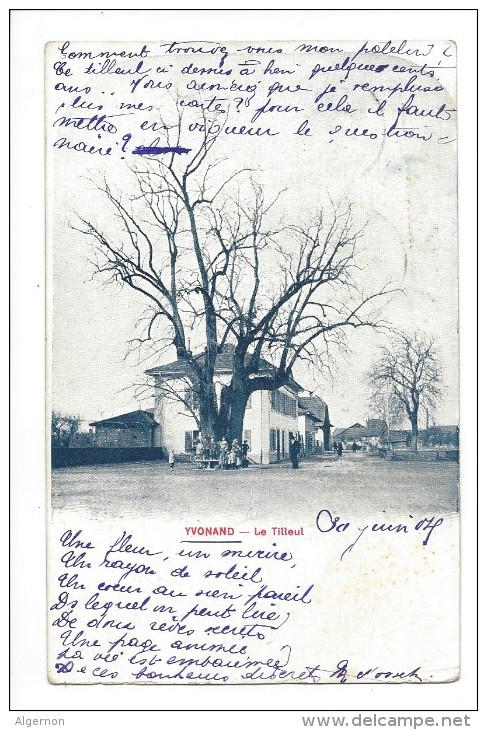 Comment trouvez vous mon patelin?
Ce tilleul ci dessus à quelques cents
ans... Vous que je remplisse
plus mes cartes? pour cela il faut
mettre en vigueur le question-
naire?
YVONAND — Le Tilleul
juin 04
Une fleur, un sourire,
Un rayon de soleil,
Un cœur au sien pareil
Dans lequel on peut lire
De doux rêves secrets
Une page animée
La vie est embaumée
De ces bonheurs discrets
Algernon
www.delcampe.net